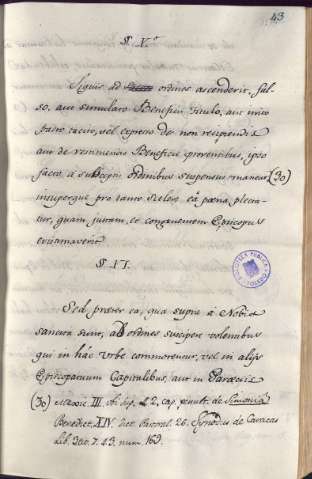 43
§ V.º
Siquis ad ordines ascenderit, fal-
so, aut simulato Beneficii titulo, aut inito
tacito, vel expreso de non recipiendis
aut de restituendis Beneficii proventibus, ipso
facto à susceptis ordinibus suspensus maneat (30)
insuperque pro tanto scelere eâ poena plecta-
tur, quam justam, et congruentem Episcopus
existimaverit.
§ VI.
Sed praeter ea, quae supra à Nobis
sancita sunt, ad ordines suscipere volentibus
qui in hâc Urbe commorentur, vel in aliis
Episcopatuum Capitalibus, aut in Paroeciis
(30) III. cap. penult. de Simonia
Benedict. XIV. Inst. Pastoral. 26. Synodus de Caracas
Lib. 3. tit. 7. §. 43. num. 163.
BIBLIOTECA PUBLICA
TOLEDO